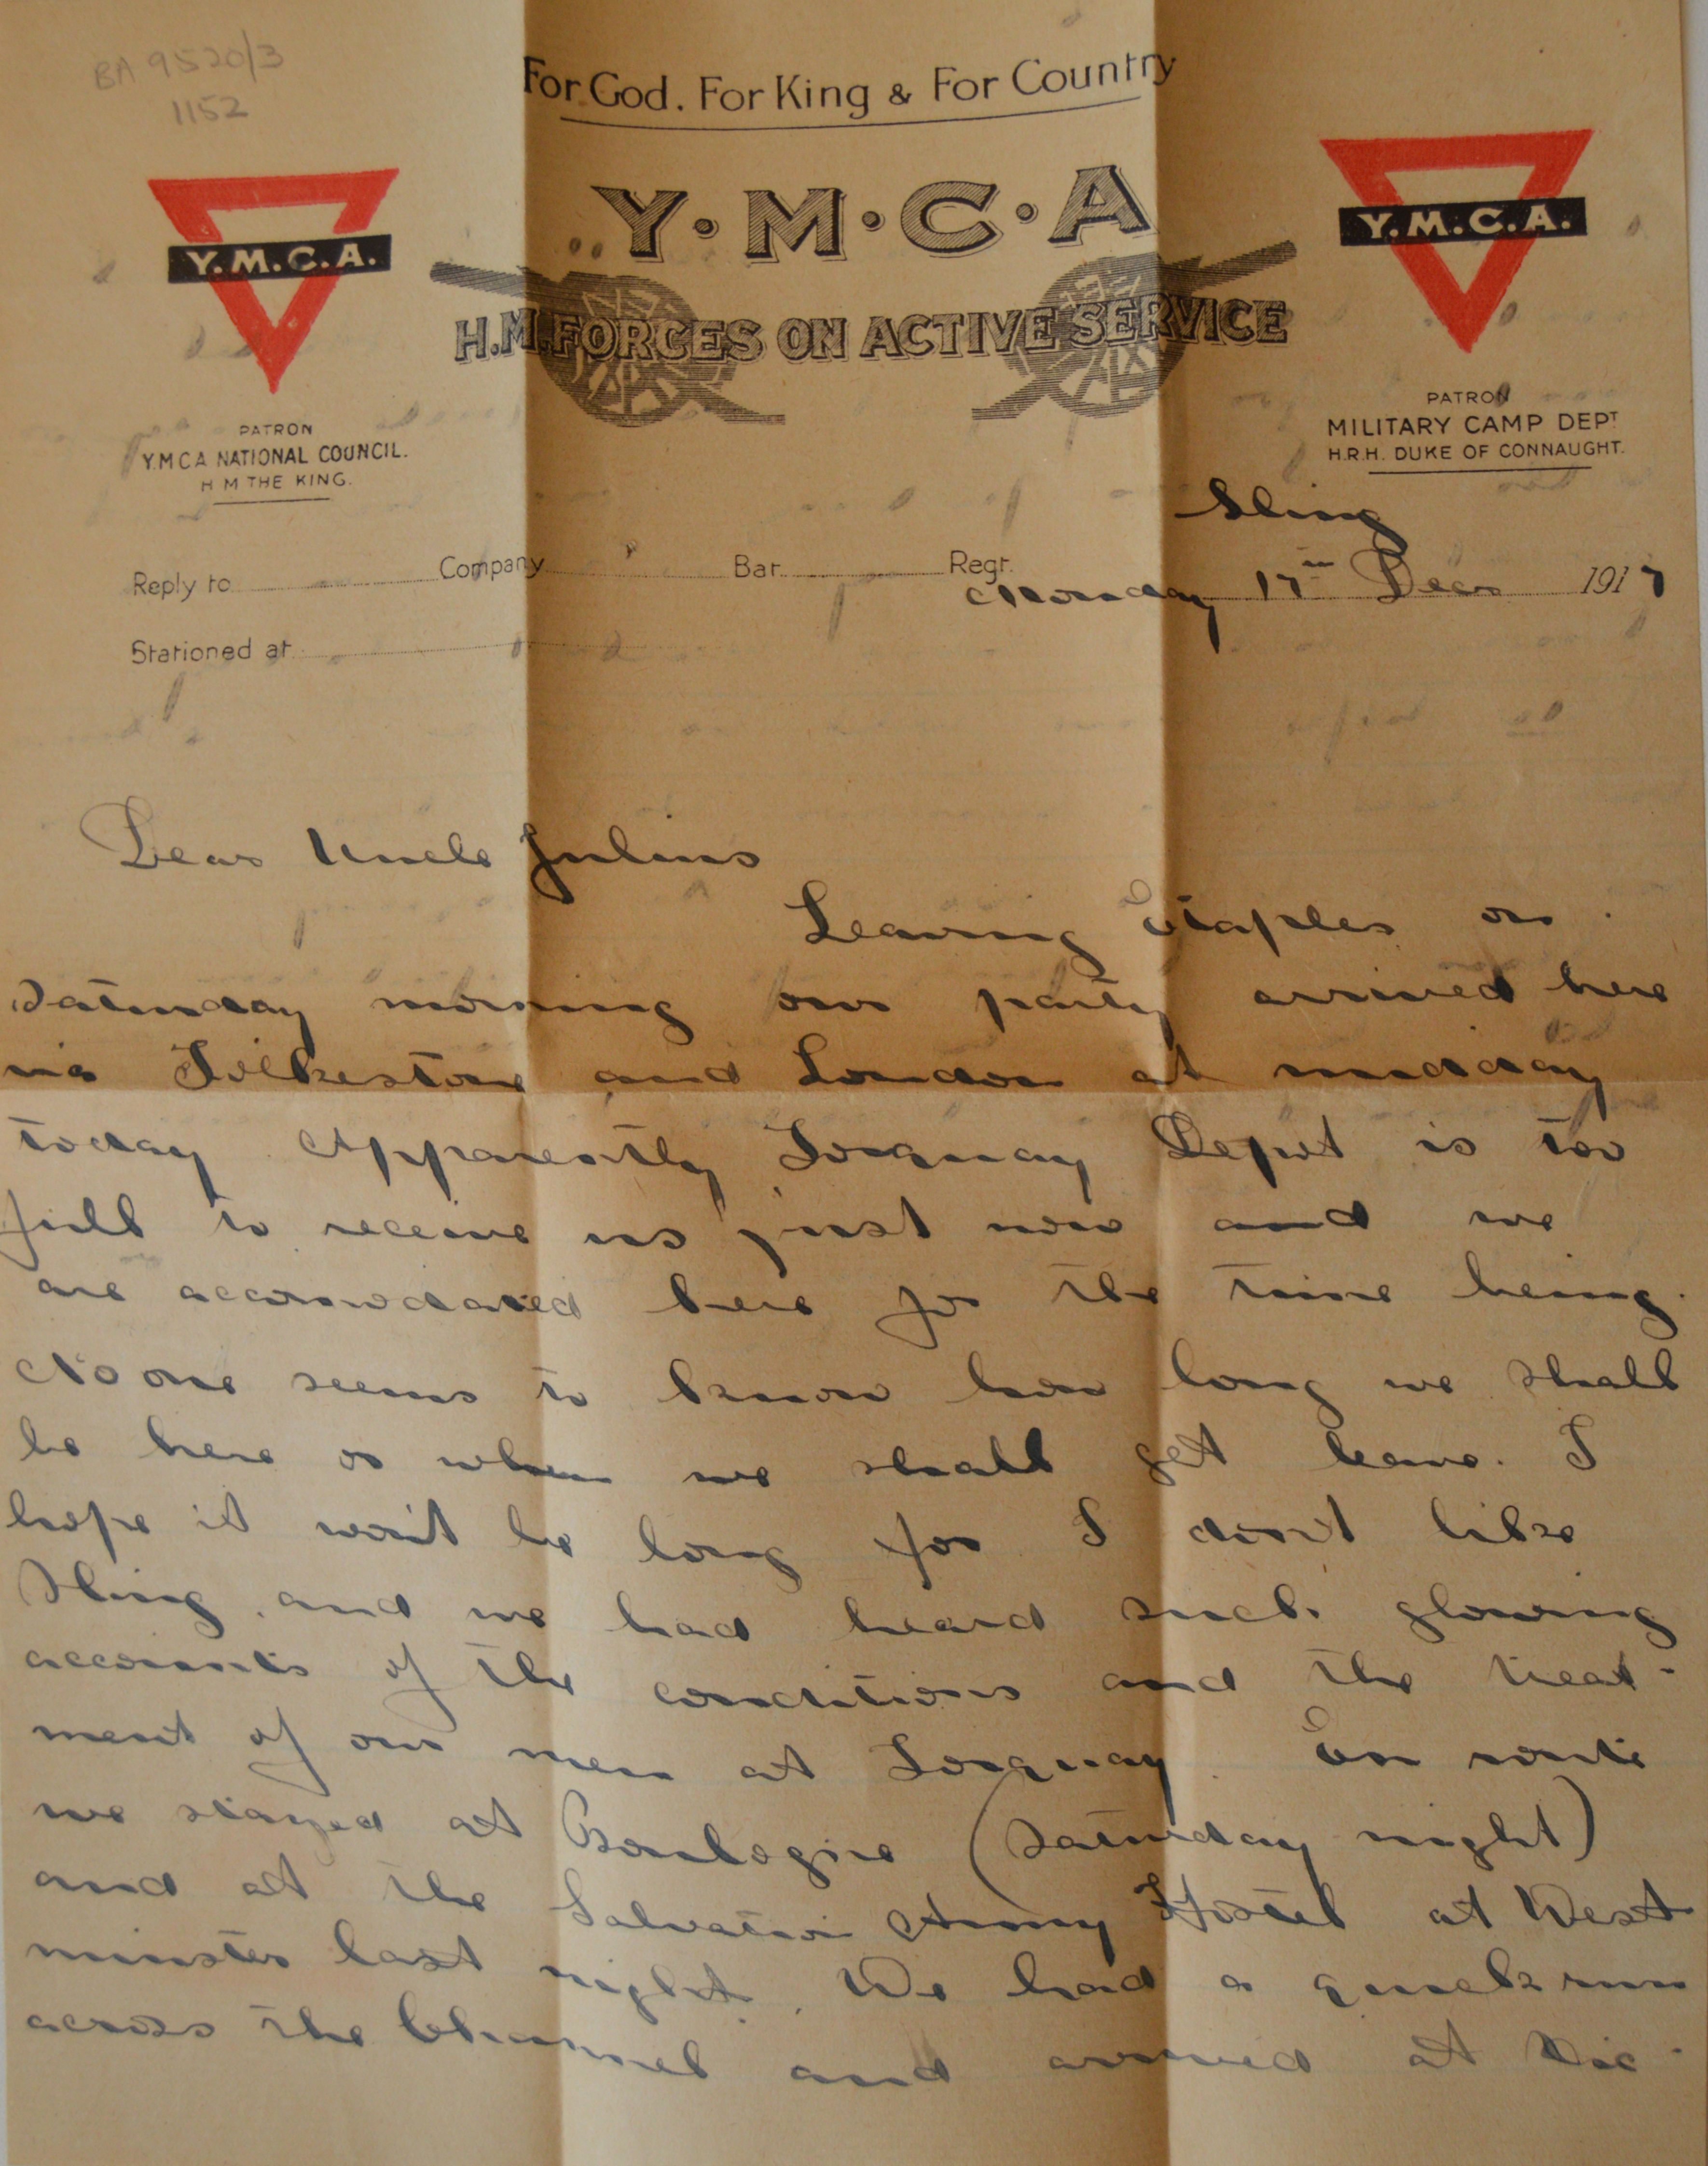 BA 9520/3
1152
For God. For King & For Country
Y·M·C·A
Y.M.C.A.
Y.M.C.A.
H.M. FORCES ON ACTIVE SERVICE
PATRON
Y.M.C.A NATIONAL COUNCIL.
H M THE KING.
PATRON
MILITARY CAMP DEPT
H.R.H. DUKE OF CONNAUGHT.
Sling
Reply to Company Bat. Regt.
Monday 17th Decr 1917
Stationed at
Dear Uncle Julius
Leaving Etaples on
Saturday morning our party arrived here
via Folkestone and London at midday
today. Apparently Torquay Depot is too
full to receive us just now and we
are accomodated here for the time being.
No one seems to know how long we shall
be here or when we shall get leave. I
hope it won't be long for I don't like
Sling, and we had heard such glowing
accounts of the conditions and the treat-
ment of our men at Torquay. En route
we stayed at Boulogne (Saturday night)
and at the Salvation Army Hostel at West
minster last night. We had a quick run
across the Channel and arrived at Vic-